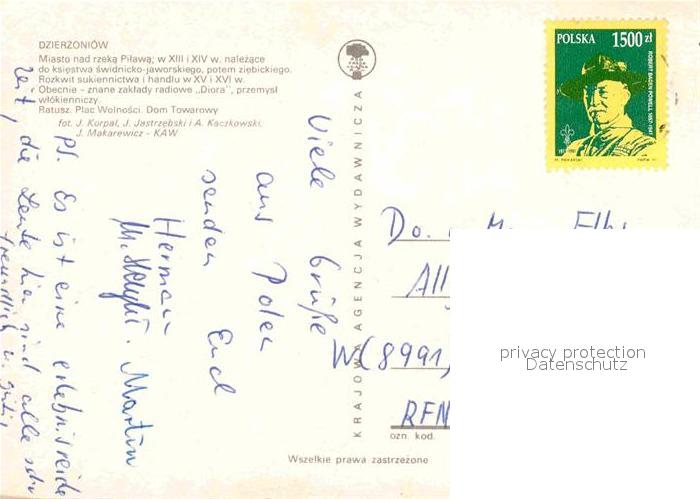 DZIERŻONIÓW
Miasto nad rzeką Piławą; w XIII i XIV w. należące
do księstwa świdnicko-jaworskiego, potem ziębickiego.
Rozkwit sukiennictwa i handlu w XV i XVI w.
Obecnie – znane zakłady radiowe „Diora", przemysł
włókienniczy.
Ratusz. Plac Wolności. Dom Towarowy
fot. J. Korpal, J. Jastrzębski i A. Kaczkowski,
J. Makarewicz - KAW
KRAJOWA AGENCJA WYDAWNICZA
POLSKA 1500 zł
ROBERT BADEN POWELL 1857-1941
Viele Grüße
aus Polen
senden Euch
Herman
Martin
PS. Es ist eine erlebnisreiche
Zeit, die Leute hier sind alle sehr
freundlich u.
Do.
W(8991)
RFN
ozn. kod.
Wszelkie prawa zastrzeżone
privacy protection
Datenschutz